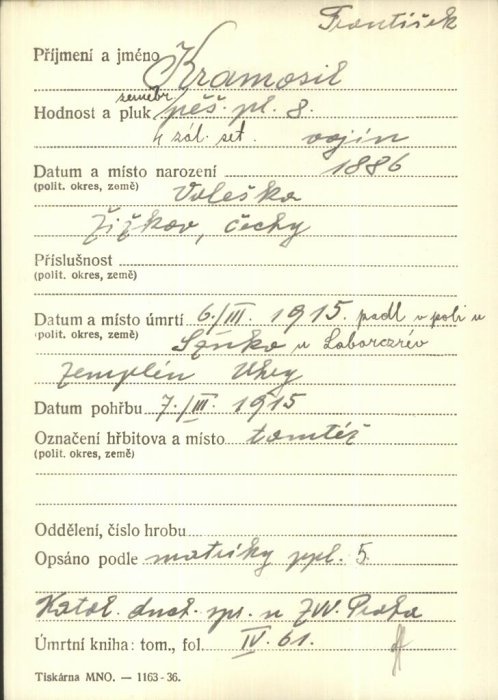 František
Příjmení a jméno Kramosil
zeměbr.
Hodnost a pluk pěš. pl. 8.
4 zál. set. vojín
Datum a místo narození 1886
(polit. okres, země) Voleška
Žižkov, Čechy
Příslušnost
(polit. okres, země)
Datum a místo úmrtí 6./III. 1915. padl v poli u
(polit. okres, země) Szńko u Laborczrév
Zemplén Uhry
Datum pohřbu 7./III. 1915
Označení hřbitova a místo tamtéž
(polit. okres, země)
Oddělení, číslo hrobu
Opsáno podle matriky ppl. 5.
Katol. duch. spr. u ZVV. Praha
Úmrtní kniha: tom., fol. IV. 61.
Tiskárna MNO. — 1163-36.